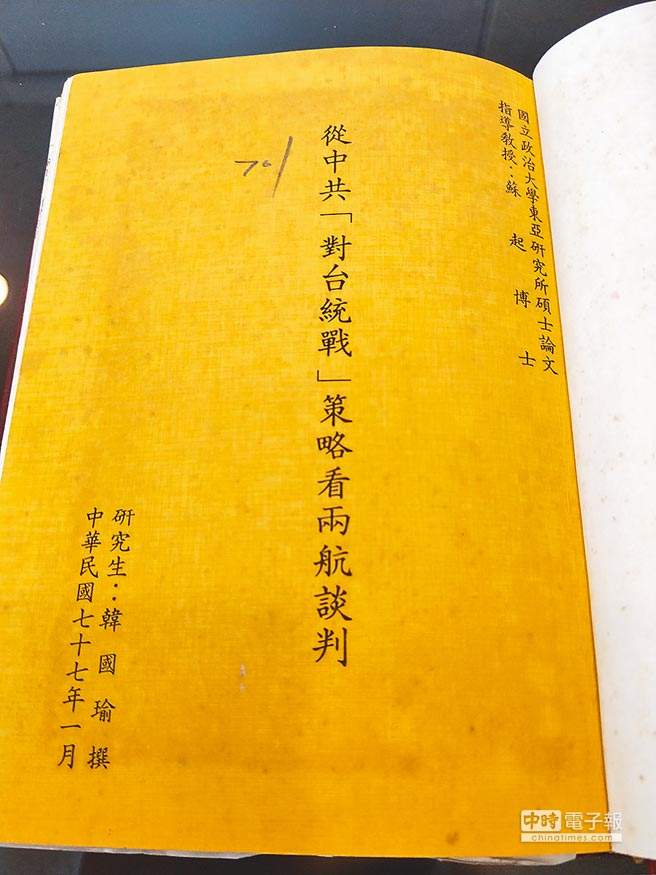 國立政治大學東亞研究所碩士論文
指導教授：蘇起博士
從中共「對台統戰」策略看兩航談判
研究生：韓國瑜撰
中華民國七十七年一月
中時電子報
chinatimes.com